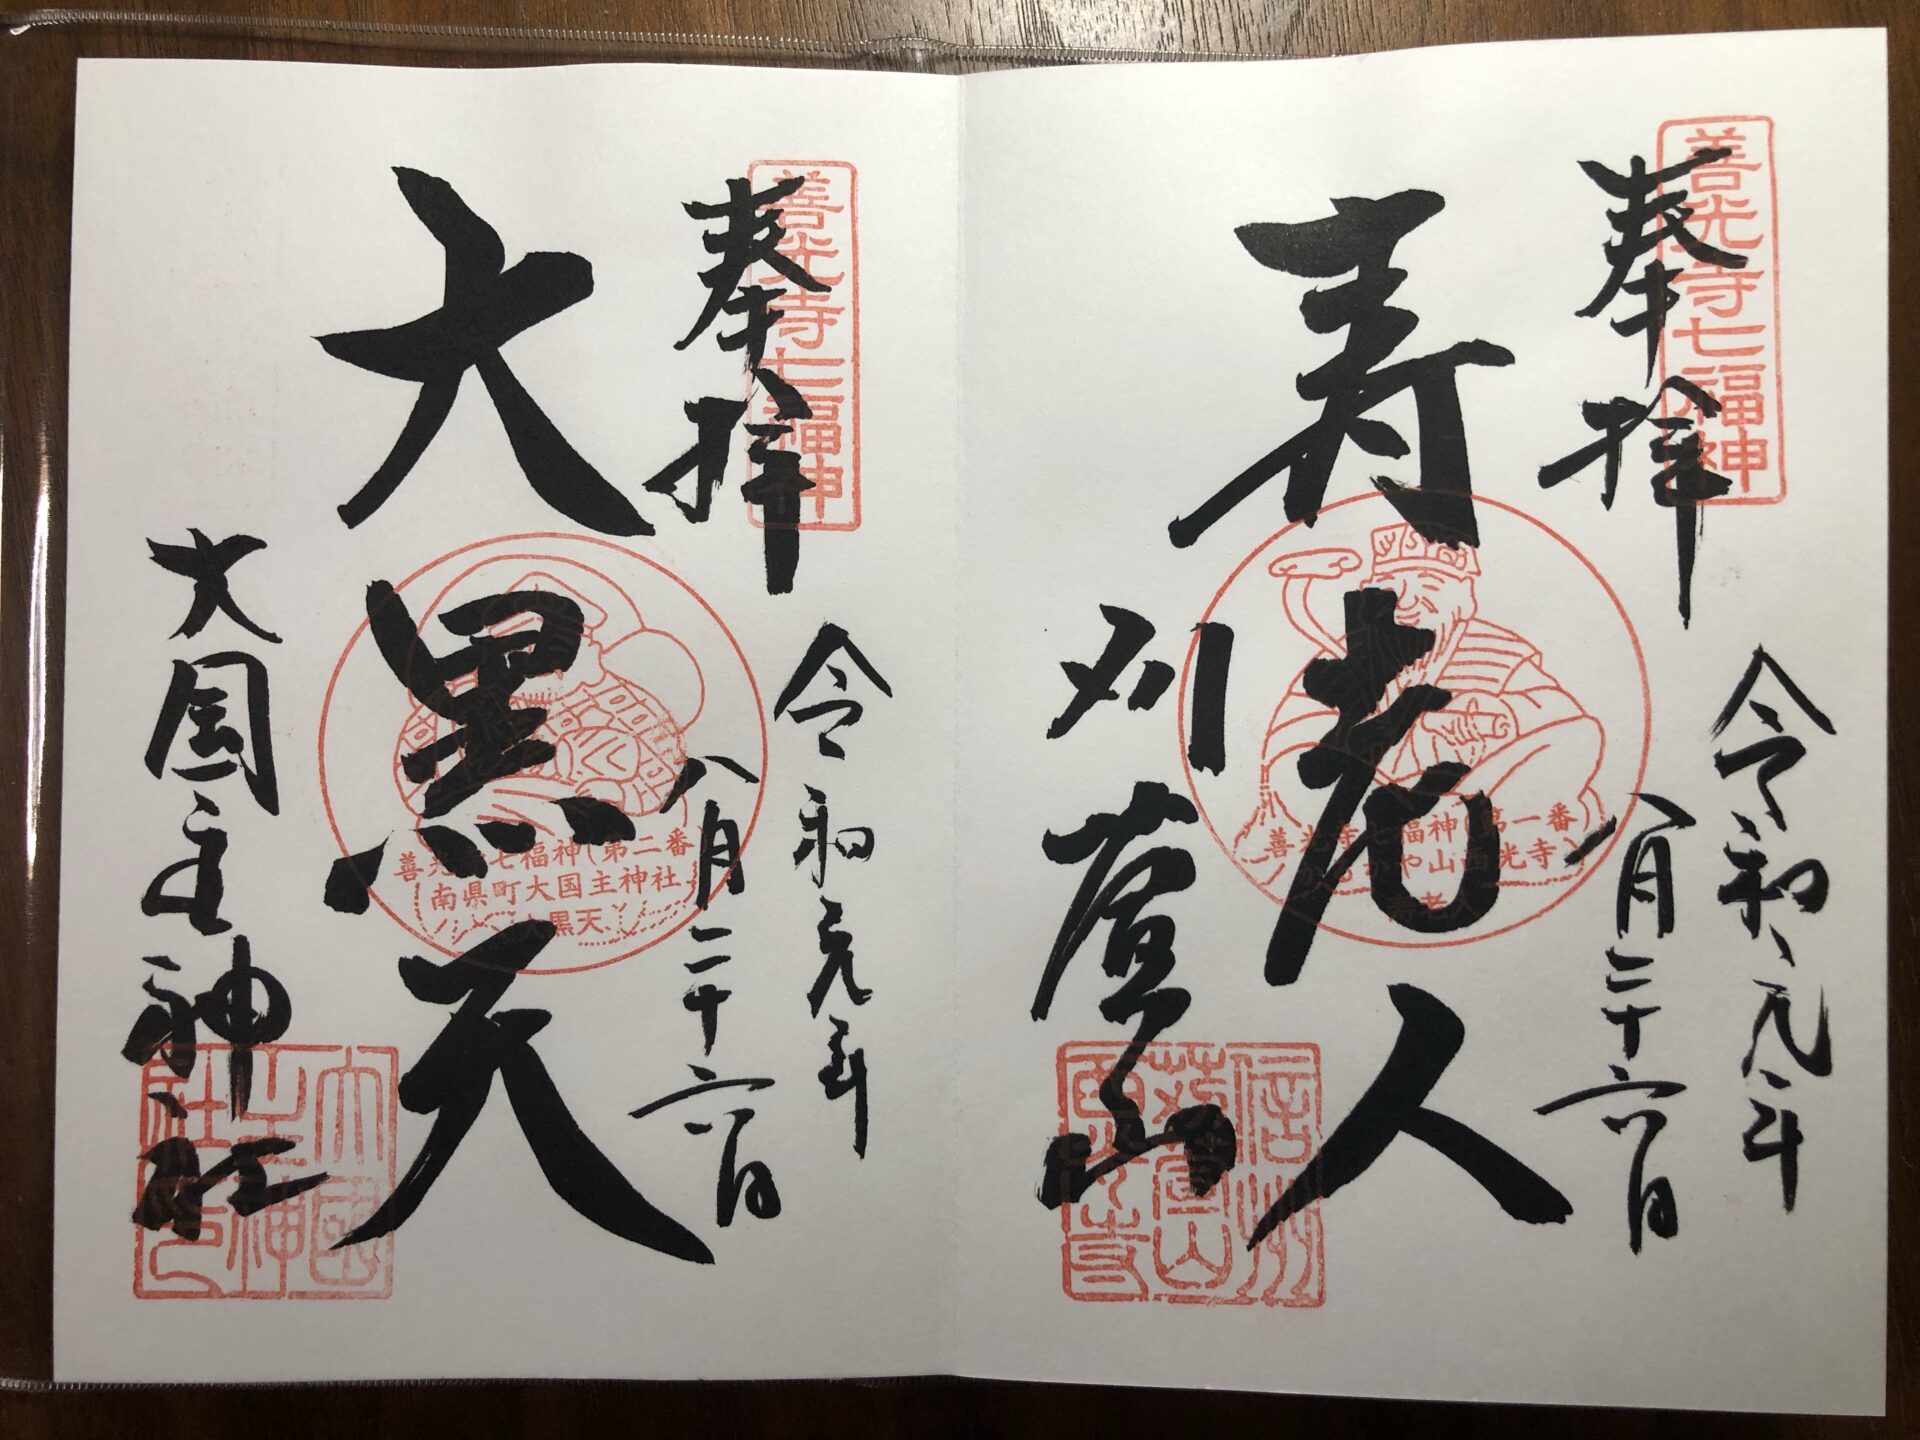 善光寺七福神
奉拝
令和元年
八月二十六日
寿老人
善光寺七福神(第一番)
かるかや山西光寺
寿老人
刈萱山
信州
苅萱山
西光寺
善光寺七福神
奉拝
令和元年
八月二十六日
大黒天
善光寺七福神(第二番)
南県町大国主神社
大黒天
大国主神社
大國
主神
社印